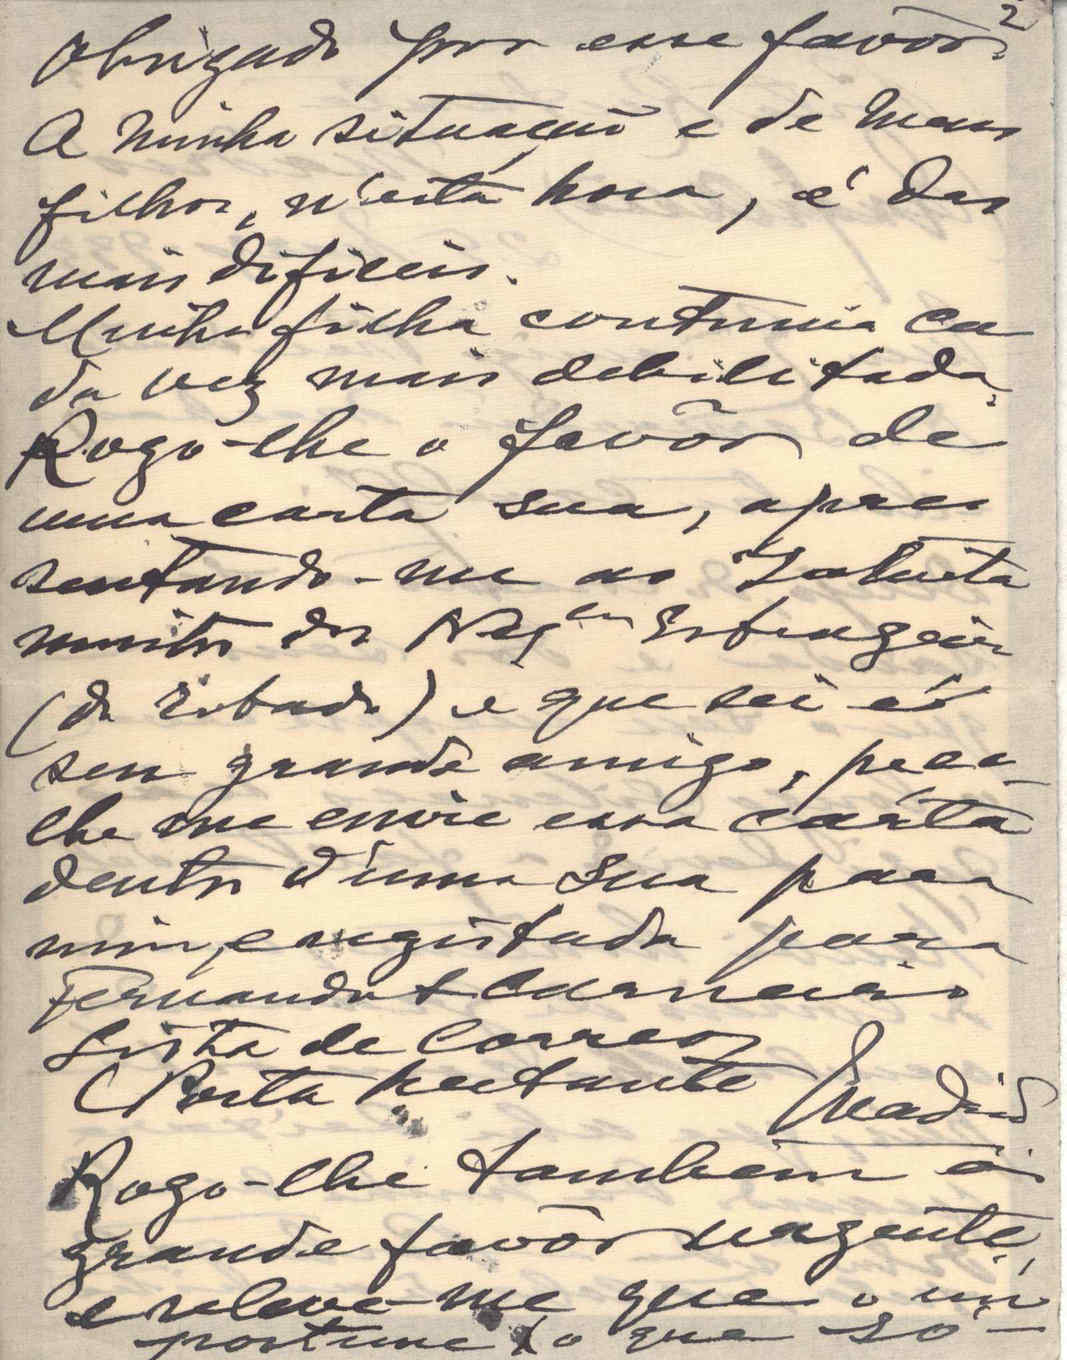 2
Obrigado por esse favôr.
A minha situação e de meus
filhos, n'esta hora, é das
mais dificeis.
Minha filha continúa ca
da vez mais debilitada.
Rogo-lhe o favôr de
uma carta sua, apre
sentando-me ao
dos Neg.os Estrangeiros
(do Estado) e que sei é
seu grande amigo, peço-
lhe me envie essa carta
dentro d'uma sua para
mim, e registada para
Fernando Carneiro
Lista de Correos
(Posta restante) Madrid
Rogo-lhe tambem o
grande favôr urgente,
e releve-me que o im
portune (o que só-